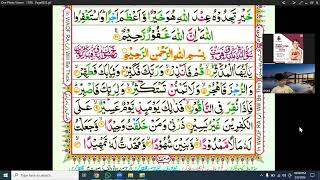 خَيْرٍ تَجِدُوْهُ عِنْدَ اللّٰهِ هُوَ خَيْرًا وَّاَعْظَمَ اَجْرًا ؕ وَاسْتَغْفِرُوا
اللّٰهَ ؕ اِنَّ اللّٰهَ غَفُوْرٌ رَّحِيْمٌ
بِسْمِ اللّٰهِ الرَّحْمٰنِ الرَّحِيْمِ
يٰۤاَيُّهَا الْمُدَّثِّرُ قُمْ فَاَنْذِرْ وَرَبَّكَ فَكَبِّرْ وَثِيَابَكَ فَطَهِّرْ
وَالرُّجْزَ فَاهْجُرْ وَلَا تَمْنُنْ تَسْتَكْثِرُ وَلِرَبِّكَ فَاصْبِرْ
فَاِذَا نُقِرَ فِي النَّاقُوْرِ فَذٰلِكَ يَوْمَئِذٍ يَّوْمٌ عَسِيْرٌ عَلَى
الْكٰفِرِيْنَ غَيْرُ يَسِيْرٍ ذَرْنِيْ وَمَنْ خَلَقْتُ وَحِيْدًا وَّجَعَلْتُ
لَهٗ مَالًا مَّمْدُوْدًا وَّبَنِيْنَ شُهُوْدًا وَّمَهَّدْتُّ لَهٗ تَمْهِيْدًا
Type here to search